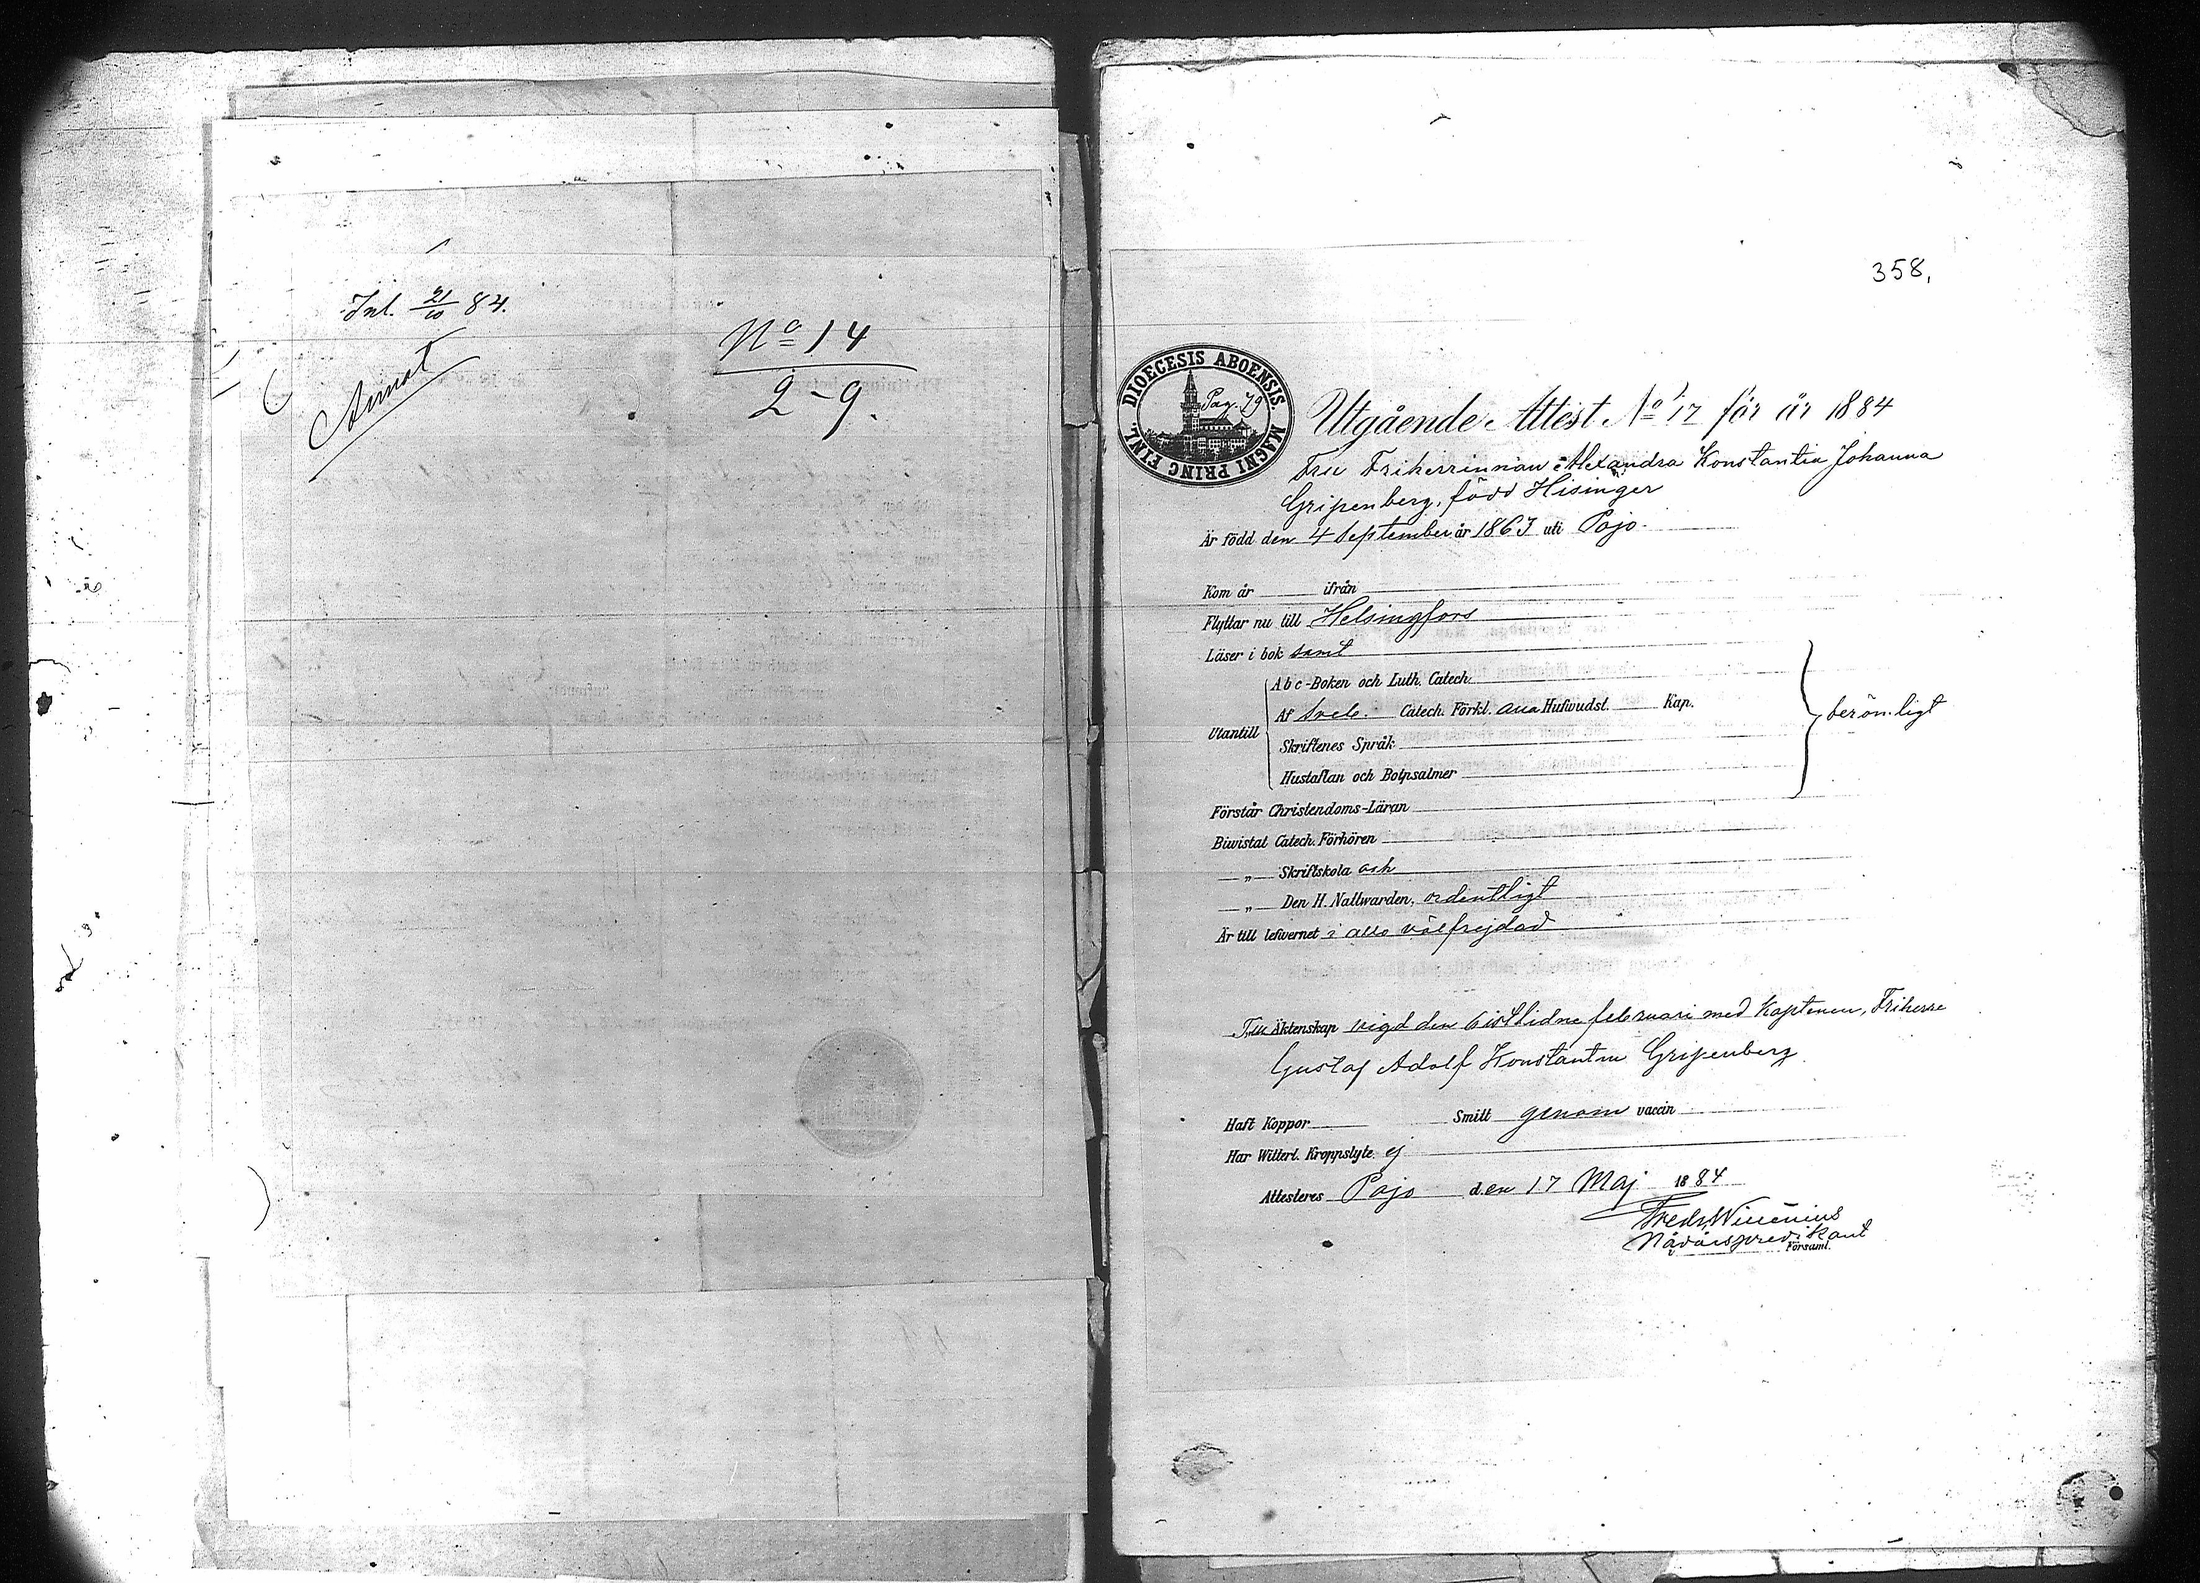 Inl. 21/10 84.
Annot
No 14
2-9.
358.
DIOECESIS ABOENSIS. MAGNI PRINC FINL.
Pag. 79
Utgående Attest No 17 för år 1884
Fru Friherrinnan Alexandra Konstantia Johanna
Gripenberg, född Hisinger
Är född den 4 September år 1863 uti Pojo.
Kom år ifrån
Flyttar nu till Helsingfors
Läser i bok samt
Utantill
Abc-Boken och Luth. Catech.
Af Sveb. Catech. Förkl. alla Hufwudst. Kap.
Skriftenes Språk
Hustaflan och Botpsalmer
berömligt
Förstår Christendoms-Läran
Biwistat Catech. Förhören
—„— Skriftskola och
—„— Den H. Nattwarden, ordentligt
Är till lefwernet i allo välfrejdad
Till Äktenskap vigd den 6 sistlidne februari med Kaptenen, Friherre
Gustaf Adolf Konstantin Gripenberg.
Haft Koppor Smitt genom vaccin
Har Witterl. Kroppslyte. ej
Attesteres Pojo den 17 Maj 1884
Fredr. Willenius
Nådårspredikant
Församl.